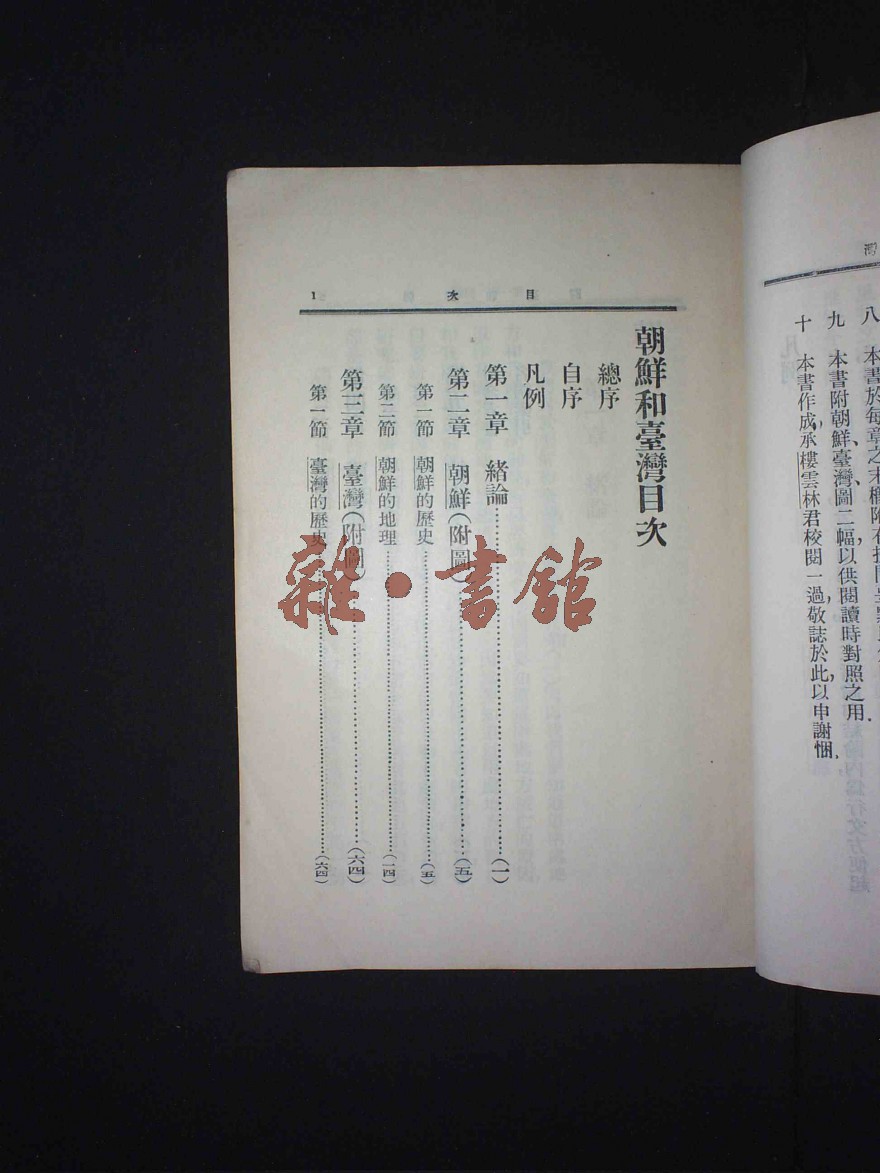 灣
八 本書於每章之末
九 本書附朝鮮、臺灣圖二幅，以供閱讀時對照之用．
十 本書作成，承樓雲林君校閱一過，敬誌於此，以申謝悃．
目次 1
朝鮮和臺灣目次
總序
自序
凡例
第一章 緒論……(一)
第二章 朝鮮(附圖)……(五)
第一節 朝鮮的歷史……(五)
第二節 朝鮮的地理……(一四)
第三章 臺灣(附圖)……(六四)
第一節 臺灣的歷史……(六四)
雜·書館